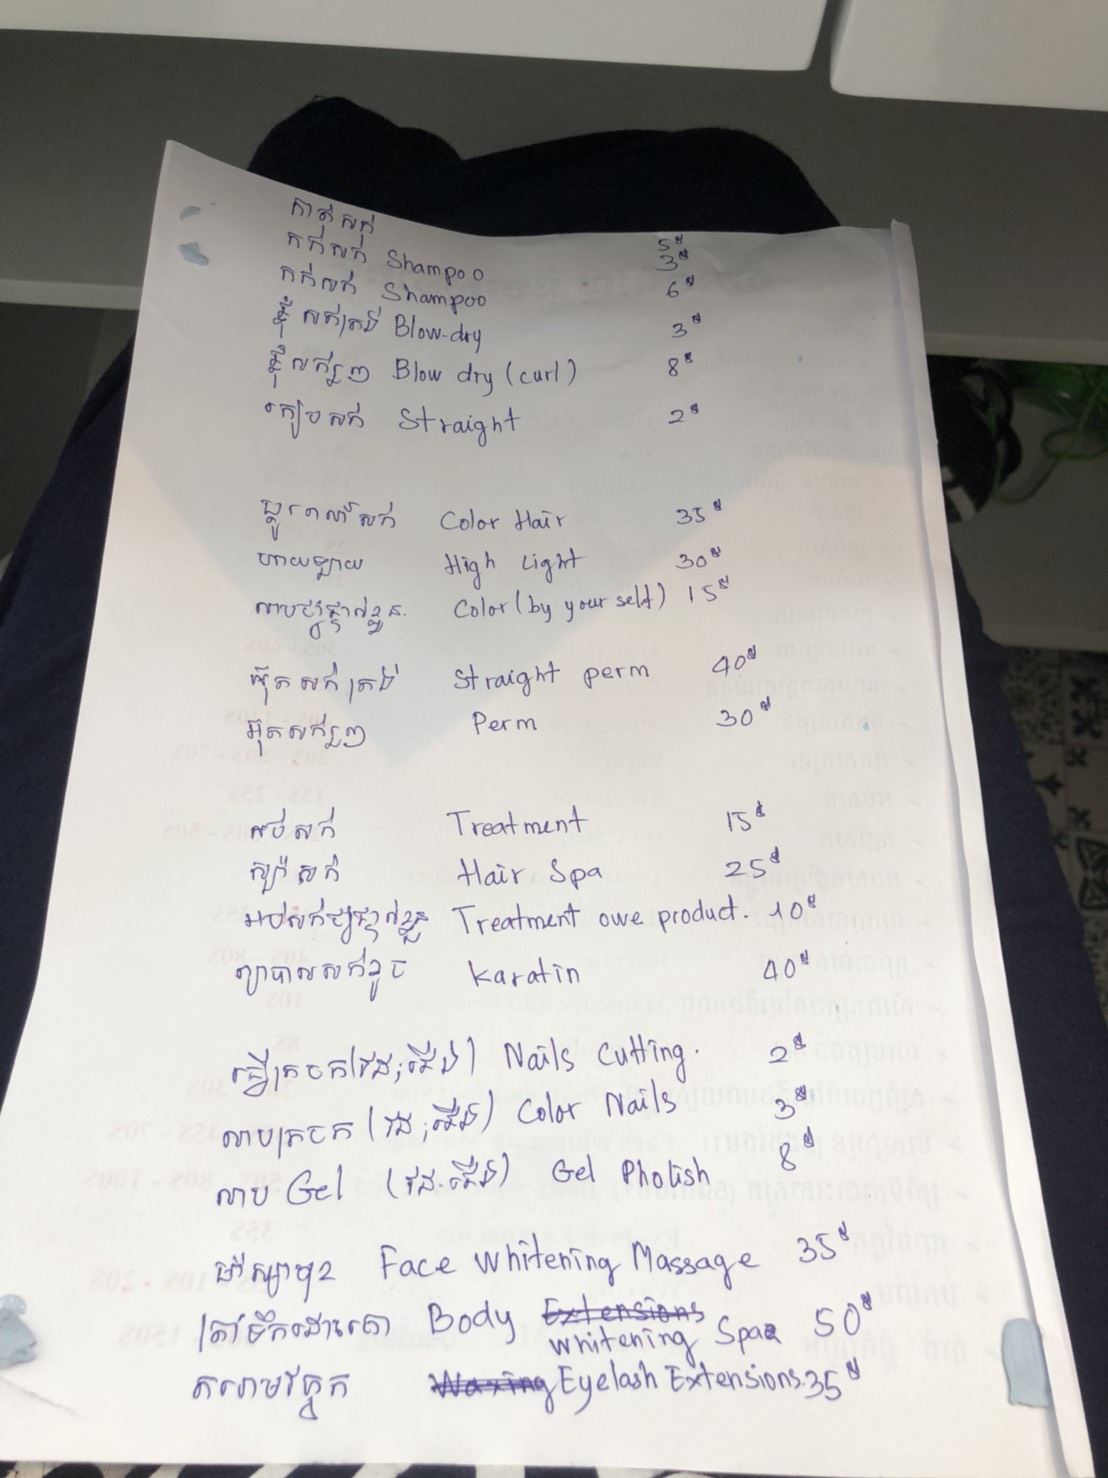 កាត់សក់ 5$
កក់សក់ Shampoo 3$
កក់សក់ Shampoo 6$
ផ្លុំសក់ត្រង់ Blow-dry 3$
ផ្លុំសក់រួញ Blow dry (curl) 8$
គៀបសក់ Straight 2$
ប្តូរពណ៌សក់ Color Hair 35$
ហាយឡាយ High Light 30$
លាបថ្នាំផ្ទាល់ខ្លួន. Color (by your self) 15$
អ៊ុតសក់ត្រង់ Straight perm 40$
អ៊ុតសក់រួញ Perm 30$
អប់សក់ Treatment 15$
ស្ប៉ាសក់ Hair Spa 25$
អប់សក់ថ្នាំផ្ទាល់ខ្លួន Treatment owe product. 10$
ព្យាបាលសក់ខូច Karatin 40$
ធ្វើក្រចក (ដៃ, ជើង) Nails Cutting. 2$
លាបក្រចក (ដៃ, ជើង) Color Nails 3$
លាប Gel (ដៃ. ជើង) Gel Pholish 8$
ម៉ាស្សាមុខ Face Whitening Massage 35$
ត្រាំទឹកដោះគោ Body Extensions whitening Spa 50$
តរោមភ្នែក Waxing Eyelash Extensions. 35$